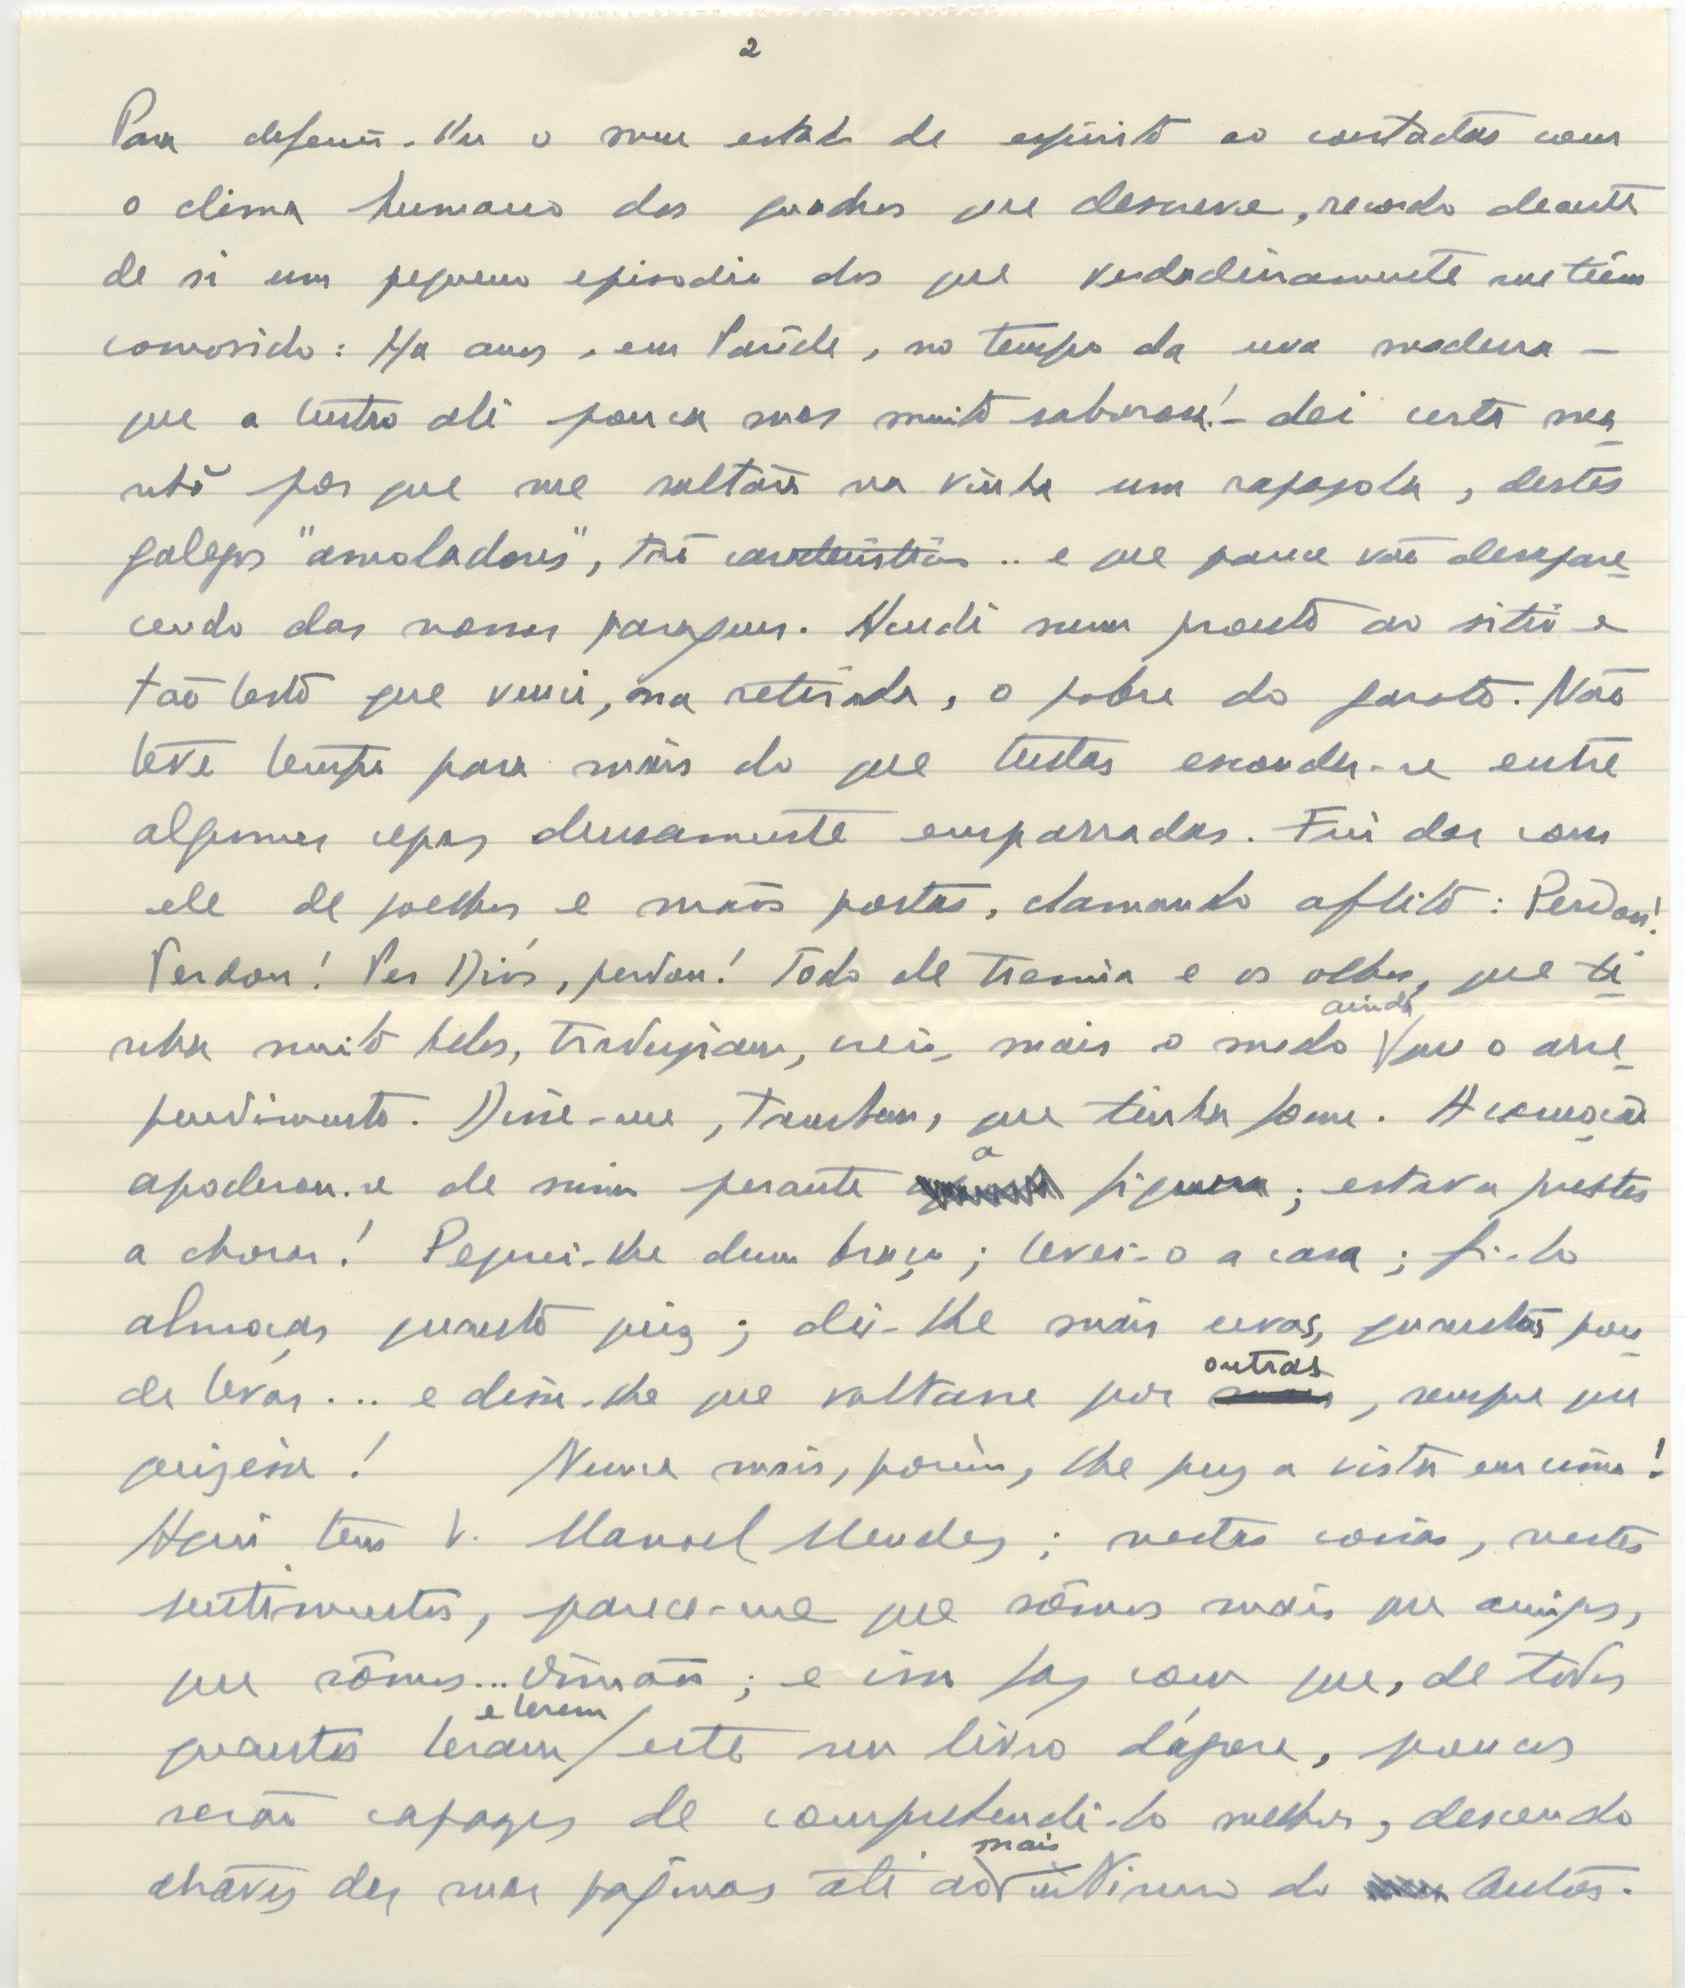 2
Para definir-lhe o meu estado de espirito ao contactar com
o clima humano dos quadros que descreve, recordo deante
de si um pequeno episodio dos que verdadeiramente me teem
comovido: Ha anos, em Parede, no tempo da uva madura —
que a tenho ali pouca mas muito saborosa! — dei certa ma-
nhã por que me saltára na vinha um rapazola, destes
galegos "amoladores", tão caracteristicos .. e que parece vão desapare-
cendo das nossas paragens. Acudi num pronto ao sitio e
tão lesto que venci, na retirada, o pobre do garoto. Não
teve tempo para mais do que tentar esconder-se entre
algumas cepas densamente emparradas. Fui dar com
ele de joelhos e mãos postas, clamando aflito: Perdon!
Perdon! Per Diós, perdon! Todo ele tremia e os olhos, que ti-
nha muito belos, traduziam, creio, mais o medo ainda que o arre-
pendimento. Disse-me, tambem, que tinha fome. A comoção
apoderou-se de mim perante a figura; estava prestes
a chorar! Peguei-lhe dum braço; levei-o a casa; fi-lo
almoçar quanto quiz; dei-lhe mais uvas, quantas pou-
de levar... e disse-lhe que voltasse por outras, sempre que
quizesse! Nunca mais, porém, lhe puz a vista em cima!
Aqui tem V. Manoel Mendes; nestas coisas, nestes
sentimentos, parece-me que sômos mais que amigos,
que sômos... irmãos; e isso faz com que, de todos
quantos leram e lerem este seu livro d'agora, poucos
serão capazes de comprehendê-lo melhor, descendo
através das suas páginas até ao mais intimo do Autor.